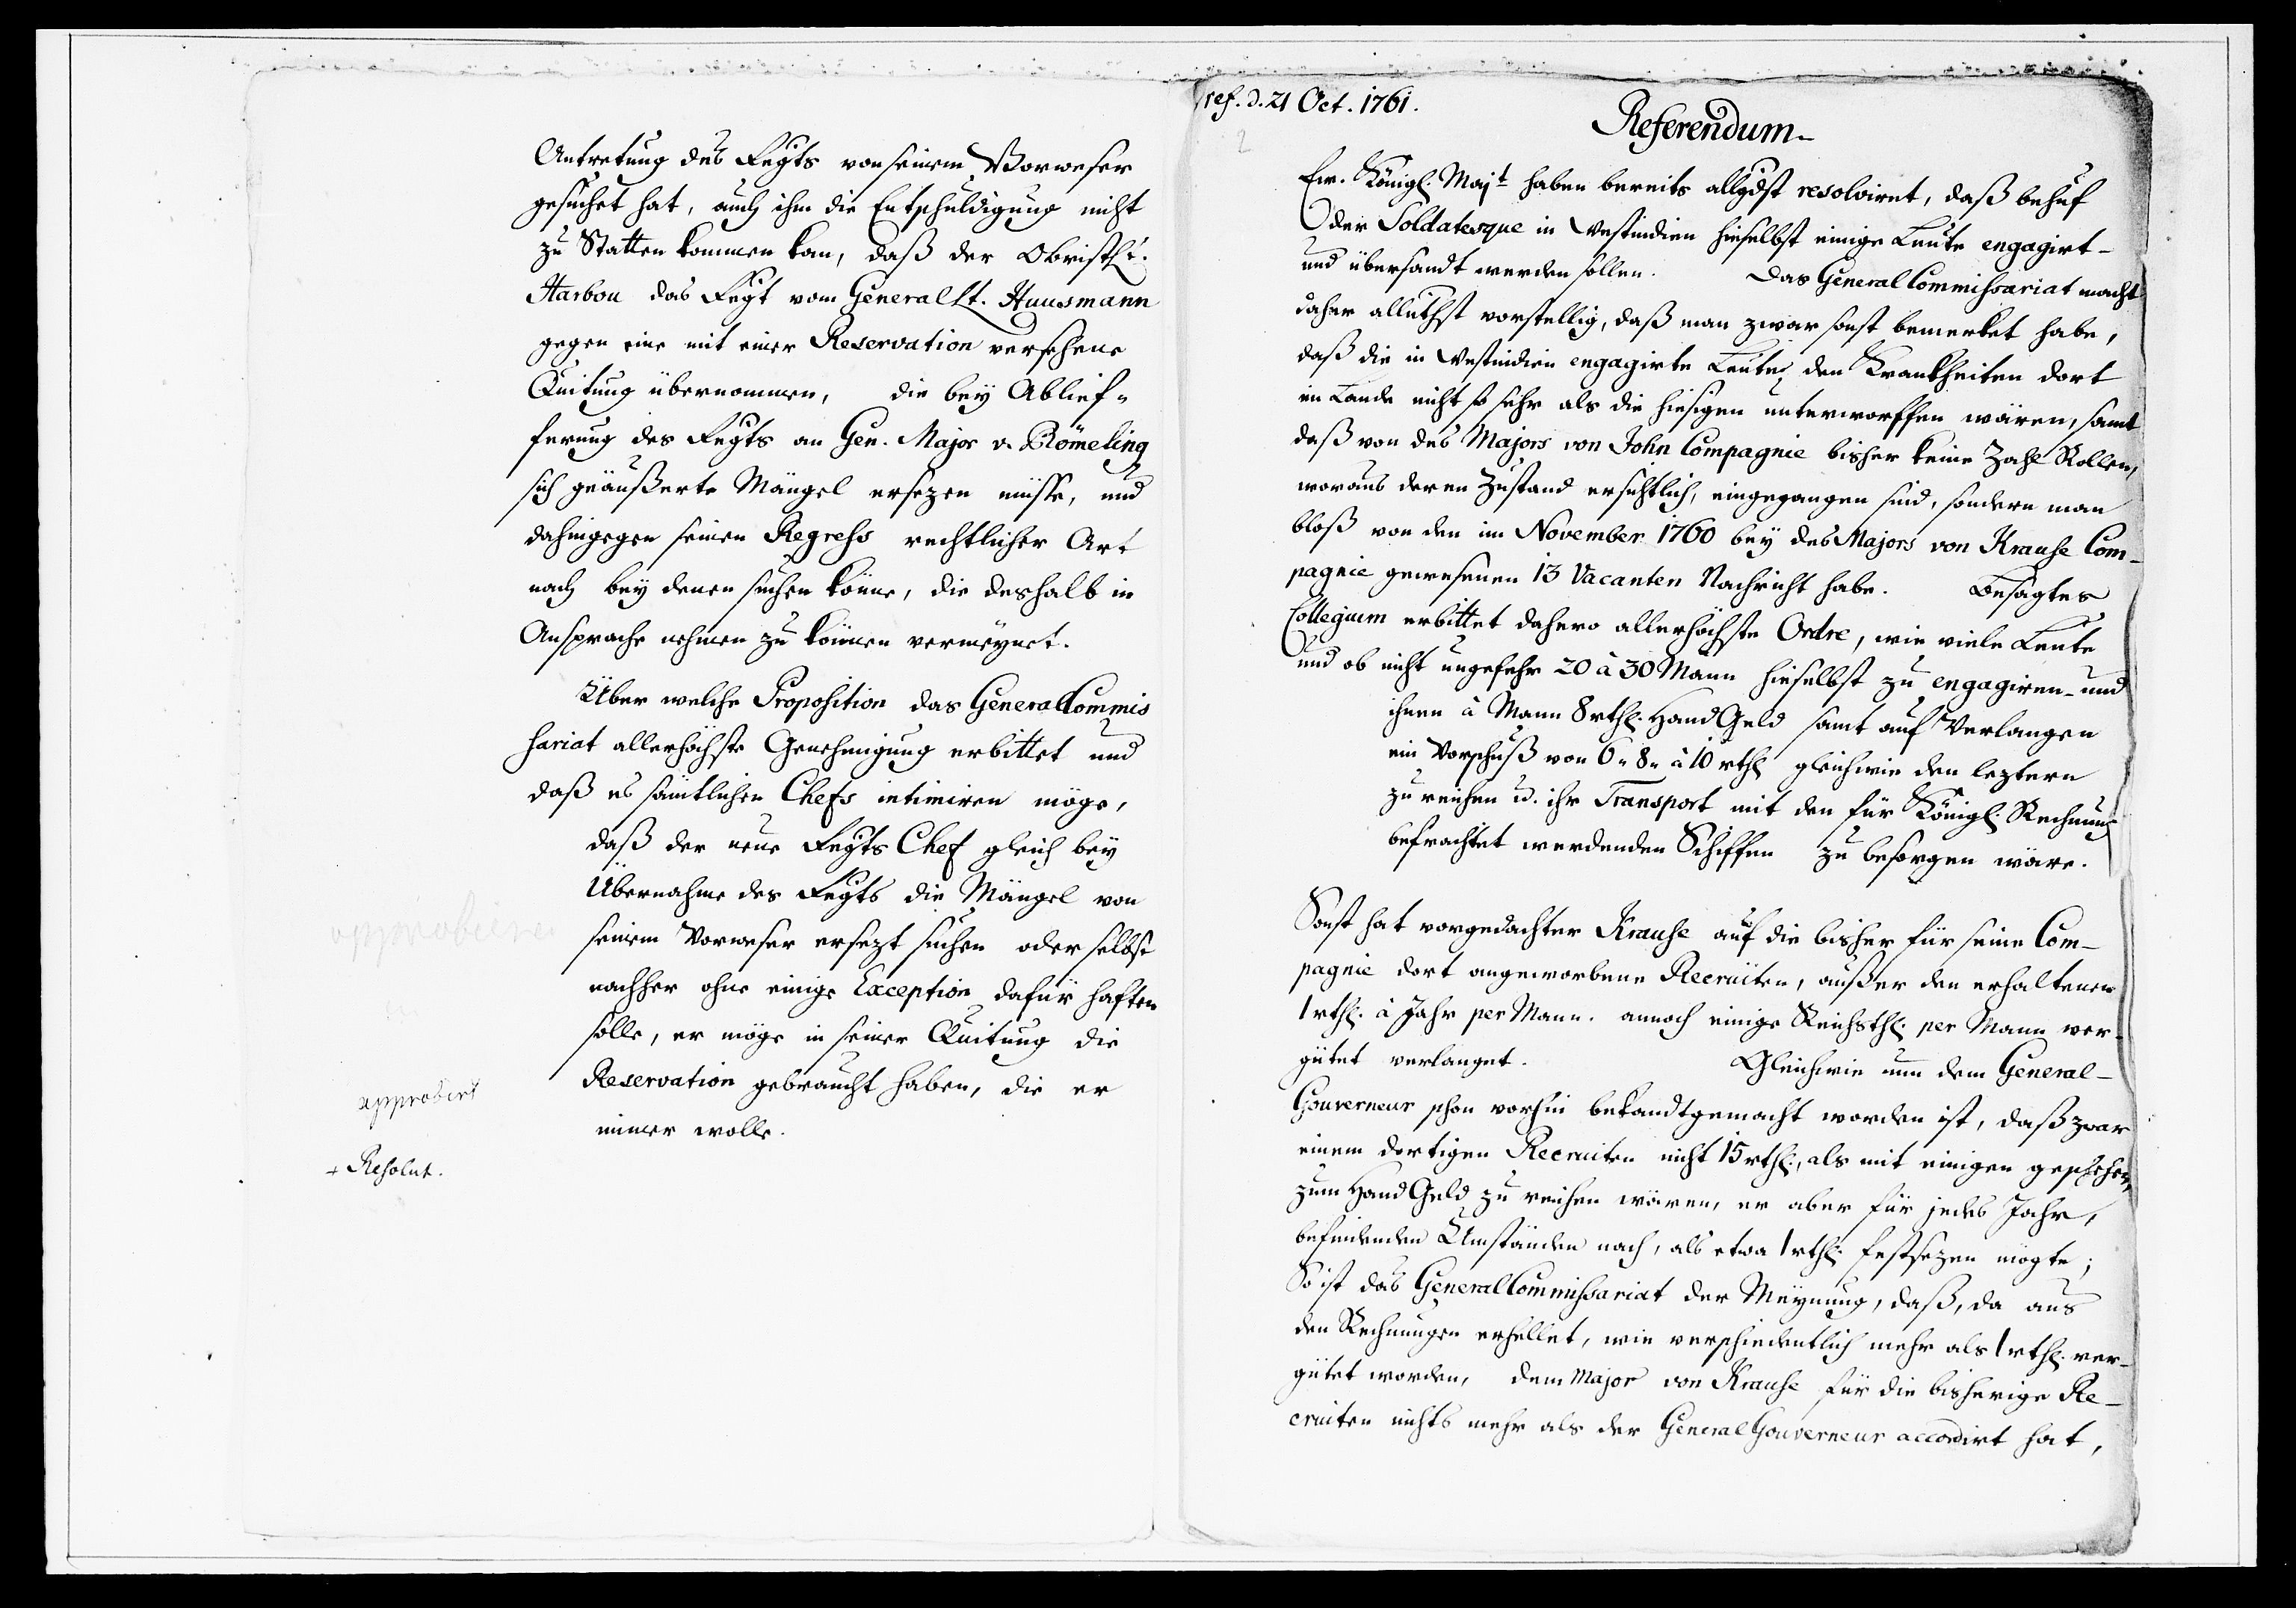 Antretung des Regts von seinem Vorweser
gesuchet hat, auch ihm die Entschuldigung nicht
zu Statten kommen kan, daß der Obristlt.
Harbou das Regt vom General Lt. Huusmann
gegen eine mit einer Reservation versehene
Quitung übernommen, die bey Ablief-
ferung des Regts an Gen. Major v. Römeling
sich geäußerte Mängel ersezen müsse, und
dahingegen seinen Regress rechtlicher Art
nach bey denen suchen könne, die deshalb in
Ansprache nehmen zu können vermeynet.
Über welche Proposition das General Commis
sariat allerhöchste Genehmigung erbittet und
daß es sämtlichen Chefs intimiren möge,
daß der neue Regts Chef gleich bey
Übernahme des Regts die Mängel von
seinem Vorweser ersezt suchen oder selbst
nachher ohne einige Exception dafür haften
solle, er möge in seiner Quitung die
Reservation gebraucht haben, die er
immer wolle.
approbiren
approbirt
+ Resolut.
ref. d. 21 Oct. 1761.
2
Referendum
Ew. Königl. Majt haben bereits allgdst resolviret, daß behuf
der Soldatesque in Westindien hieselbst einige Leute engagirt-
und übersandt werden sollen. Das General Commissariat macht
daher alluthst vorstellig, daß man zwar sonst bemerket habe,
daß die in Westindien engagirte Leute den Krankheiten dort
im Lande nicht so sehr als die hiesigen unterworffen wären, samt
daß von des Majors von John Compagnie bisher keine Zahl Rollen,
woraus deren Zustand ersichtlich, eingegangen sind, sondern man
bloß von den im November 1760 bey des Majors von Krause Com-
pagnie gewesenen 13 Vacanten Nachricht habe. Besagtes
Collegium erbittet dahero allerhöchste Ordre, wie viele Leute
und ob nicht ungefehr 20 à 30 Mann hieselbst zu engagiren- und
ihnen à Mann 8 rthl. Hand Geld samt auf Verlangen
ein Vorschuß von 6 " 8 " à 10 rthl gleichwie den leztern
zu reichen u. ihr Transport mit den für Königl. Rechnung
befrachtet werdenden Schiffen zu besorgen wäre.
Sonst hat vorgedachter Krause auf die bisher für seine Com-
pagnie dort angeworbene Recruiten, außer den erhaltenen
1 rthl. à Jahr per Mann. annoch einige Reichsthl. per Mann ver-
gütet verlanget. Gleichwie nun dem General-
Gouverneur schon vorhin bekandtgemacht worden ist, daß zwar
einem dortigen Recruiten nicht 15 rthl., als mit einigen geschehen,
zum Hand Geld zu reichen wären, er aber für jedes Jahr,
befindenden Umständen nach, als etwa 1 rthl. festsezen mögte;
So ist das General Commissariat der Meynung, daß, da aus
den Rechnungen erhellet, wie verschiedentlich mehr als 1 rthl. ver-
gütet worden, dem Major von Krause für die bisherige Re-
cruiten nichts mehr als der General Gouverneur accordirt hat,